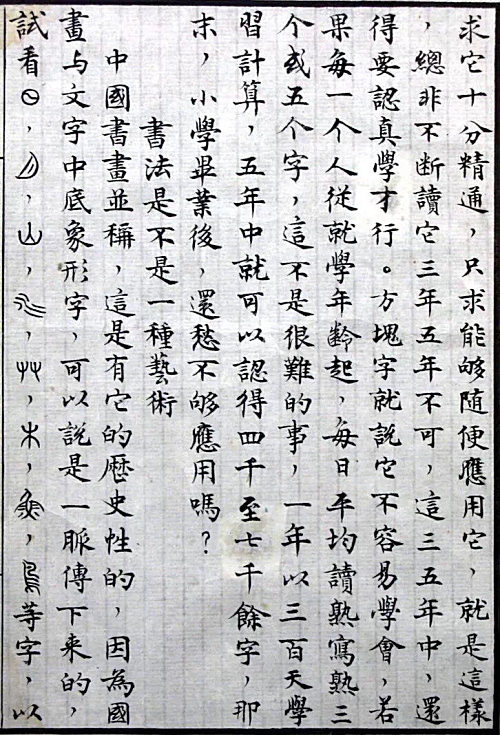 求它十分精通，只求能够隨便應用它，就是這樣
，總非不断讀它三年五年不可，這三五年中，還
得要認真學才行。方塊字就說它不容易學會，若
果每一个人從就學年齡起，每日平均讀熟寫熟三
个或五个字，這不是很難的事，一年以三百天學
習計算，五年中就可以認得四千至七千餘字，那
末，小學畢業後，還愁不够應用嗎？
書法是不是一種藝術
中國書畫並稱，這是有它的歷史性的，因為國
畫与文字中底象形字，可以說是一脈傳下来的，
試看，，山，，艸，木，，等字，以